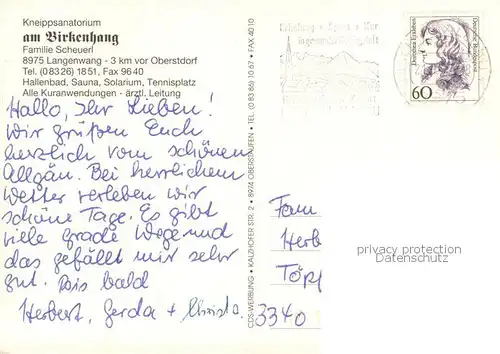 Kneippsanatorium
am Birkenhang
Familie Scheuerl
8975 Langenwang - 3 km vor Oberstdorf
Tel. (08326) 1851, Fax 9640
Hallenbad, Sauna, Solarium, Tennisplatz
Alle Kuranwendungen - ärztl. Leitung
Hallo, Ihr Lieben!
Wir grüßen Euch
herzlich vom schönen
Allgäu. Bei herrlichem
Wetter verleben wir
schöne Tage. Es gibt
viele grade Wege und
das gefällt mir sehr
gut. Bis bald
Herbert, Gerda + Christa.
CDS-WERBUNG • KALZHOFER STR. 2 • 8974 OBERSTAUFEN • TEL. (0 83 86) 10 67 • FAX 4010
Erholung • Sport • Kur
Dorothea Erxleben
Deutsche Bundespost
60
Fam
Herb
Töpf
3340
privacy protection
Datenschutz